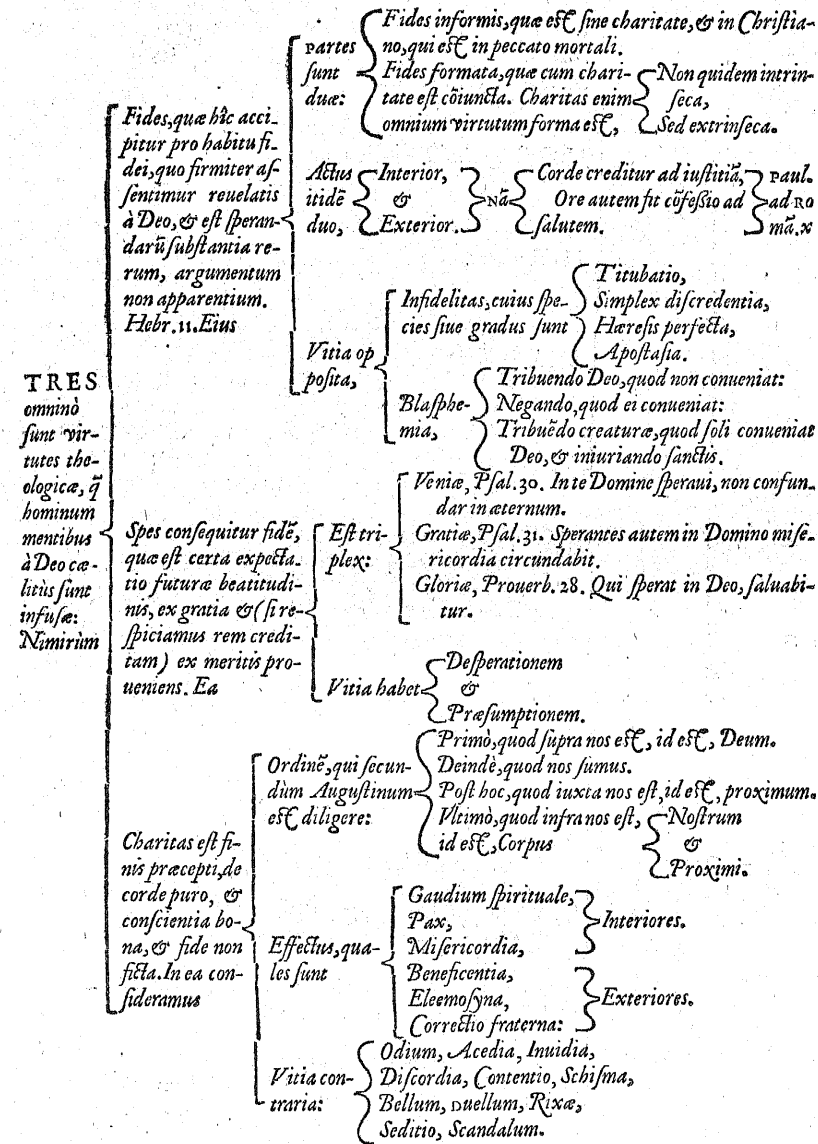 TRES
omninò
sunt vir-
tutes the-
ologicæ, q̃
hominum
mentibus
à Deo cæ-
litùs sunt
infusæ:
Nimirùm
Fides, quæ hîc acci-
pitur pro habitu fi-
dei, quo firmiter as-
sentimur reuelatis
à Deo, & est speran-
darũ substantia re-
rum, argumentum
non apparentium.
Hebr. 11. Eius
partes
sunt
duæ:
Fides informis, quæ est sine charitate, & in Christia-
no, qui est in peccato mortali.
Fides formata, quæ cum chari-
tate est cõiuncta. Charitas enim
omnium virtutum forma est,
Non quidem intrin-
seca,
Sed extrinseca.
Actus
itidẽ
duo,
Interior,
&
Exterior.
Nã
Corde creditur ad iustitiã,
Ore autem fit cõfessio ad
salutem.
Paul.
ad Ro
mã. x
Vitia op
posita,
Infidelitas, cuius spe-
cies siue gradus sunt
Titubatio,
Simplex discredentia,
Hæresis perfecta,
Apostasia.
Blasphe-
mia,
Tribuendo Deo, quod non conueniat:
Negando, quod ei conueniat:
Tribuẽdo creaturæ, quod soli conueniat
Deo, & iniuriando sanctis.
Spes consequitur fidẽ,
quæ est certa expecta-
tio futuræ beatitudi-
nis, ex gratia & (si re-
spiciamus rem credi-
tam) ex meritis pro-
ueniens. Ea
Est tri-
plex:
Veniæ, Psal. 30. In te Domine speraui, non confun-
dar in æternum.
Gratiæ, Psal. 31. Sperantes autem in Domino mise-
ricordia circundabit.
Gloriæ, Prouerb. 28. Qui sperat in Deo, saluabi-
tur.
Vitia habet
Desperationem
&
Præsumptionem.
Charitas est fi-
nis præcepti, de
corde puro, &
conscientia bo-
na, & fide non
ficta. In ea con-
sideramus
Ordinẽ, qui secun-
dùm Augustinum
est diligere:
Primò, quod supra nos est, id est, Deum.
Deindè, quod nos sumus.
Post hoc, quod iuxta nos est, id est, proximum.
Vltimò, quod infra nos est,
id est, Corpus
Nostrum
&
Proximi.
Effectus, qua-
les sunt
Gaudium spirituale,
Pax,
Misericordia,
Interiores.
Beneficentia,
Eleemosyna,
Correctio fraterna:
Exteriores.
Vitia con-
traria:
Odium, Acedia, Inuidia,
Discordia, Contentio, Schisma,
Bellum, Duellum, Rixæ,
Seditio, Scandalum.